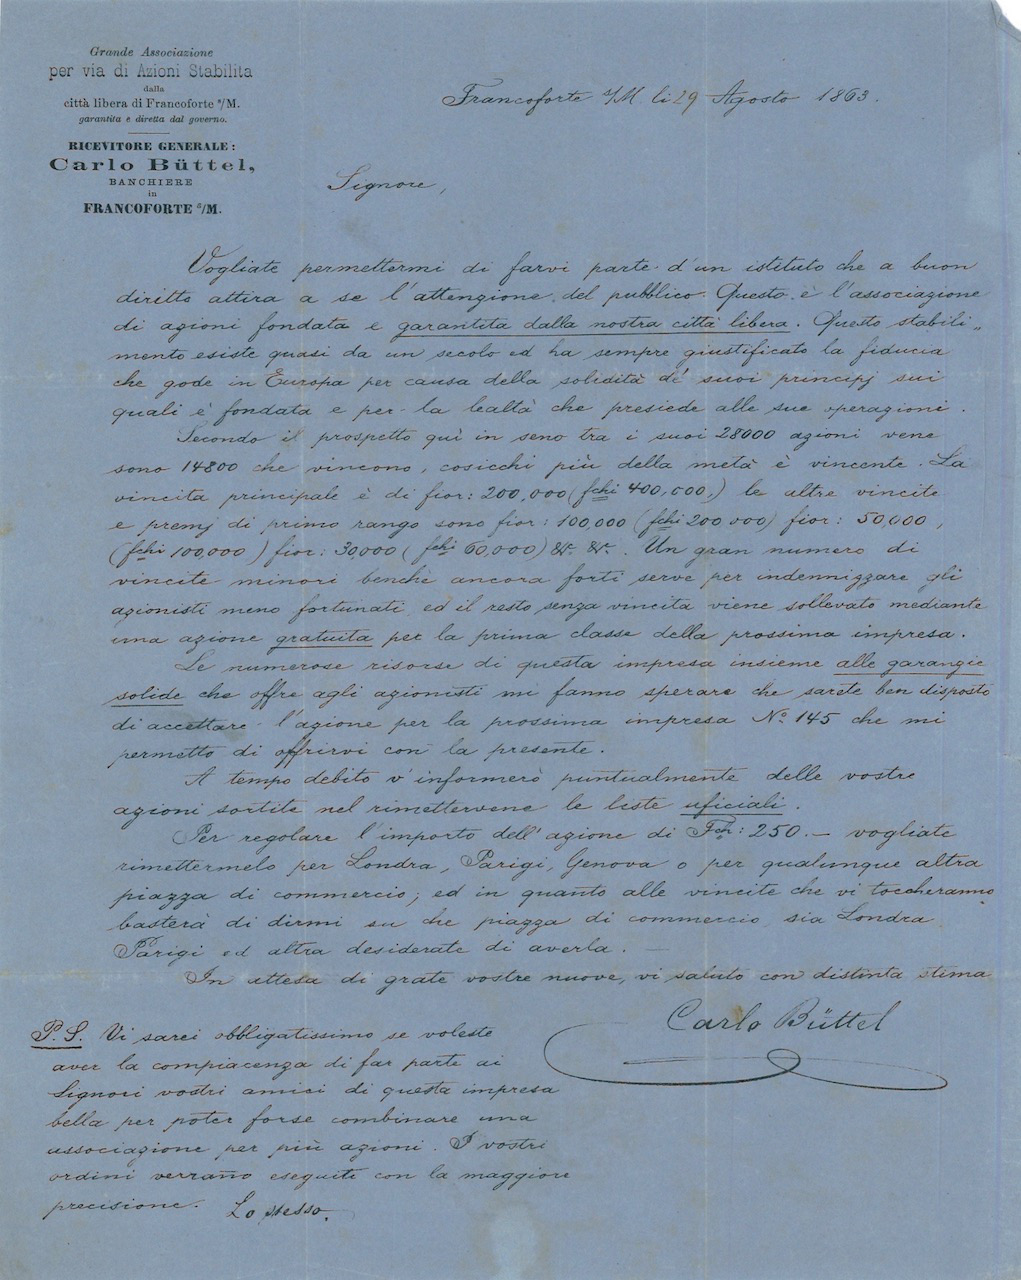 Grande Associazione
per via di Azioni Stabilita
dalla
città libera di Francoforte a/M.
garantita e diretta dal governo.
RICEVITORE GENERALE:
Carlo Büttel,
BANCHIERE
in
FRANCOFORTE a/M.
Francoforte a/M. li 29 Agosto 1863.
Signore,
Vogliate permettermi di farvi parte d'un istituto che a buon
diritto attira a se l'attenzione del pubblico. Questo è l'associazione
di azioni fondata e garantita dalla nostra città libera. Questo stabili„
mento esiste quasi da un secolo ed ha sempre giustificato la fiducia
che gode in Europa per causa della solidità de' suoi principj sui
quali è fondata e per la lealtà che presiede alle sue operazioni.
Secondo il prospetto quì in seno tra i suoi 28000 azioni vene
sono 14800 che vincono, cosicchi più della metà è vincente. La
vincita principale è di fior: 200,000 (fchi 400,000,) le altre vincite
e premj di primo rango sono fior: 100,000 (fchi 200,000) fior: 50,000,
(fchi 100,000) fior: 30,000 (fchi 60,000) &r. &r. Un gran numero di
vincite minori benchè ancora forti serve per indennizzare gli
azionisti meno fortunati, ed il resto senza vincita viene sollevato mediante
una azione gratuita per la prima classe della prossima impresa.
Le numerose risorse di questa impresa insieme alle garanzie
solide che offre agli azionisti mi fanno sperare che sarete ben disposto
di accettare l'azione per la prossima impresa No. 145 che mi
permetto di offrirvi con la presente.
A tempo debito v'informerò puntualmente delle vostre
azioni sortite nel rimettervene le liste uficiali.
Per regolare l'importo dell'azione di Fch: 250.— vogliate
rimettermelo per Londra, Parigi, Genova o per qualunque altra
piazza di commercio; ed in quanto alle vincite che vi toccheranno
basterà di dirmi su che piazza di commercio sia Londra
Parigi ed altra desiderate di averla. —
In attesa di grate vostre nuove, vi saluto con distinta stima
Carlo Büttel
P.S. Vi sarei obbligatissimo se voleste
aver la compiacenza di far parte ai
Signori vostri amici di questa impresa
bella per poter forse combinare una
associazione per più azioni. I vostri
ordini verrano eseguiti con la maggiore
precisione. Lo stesso.